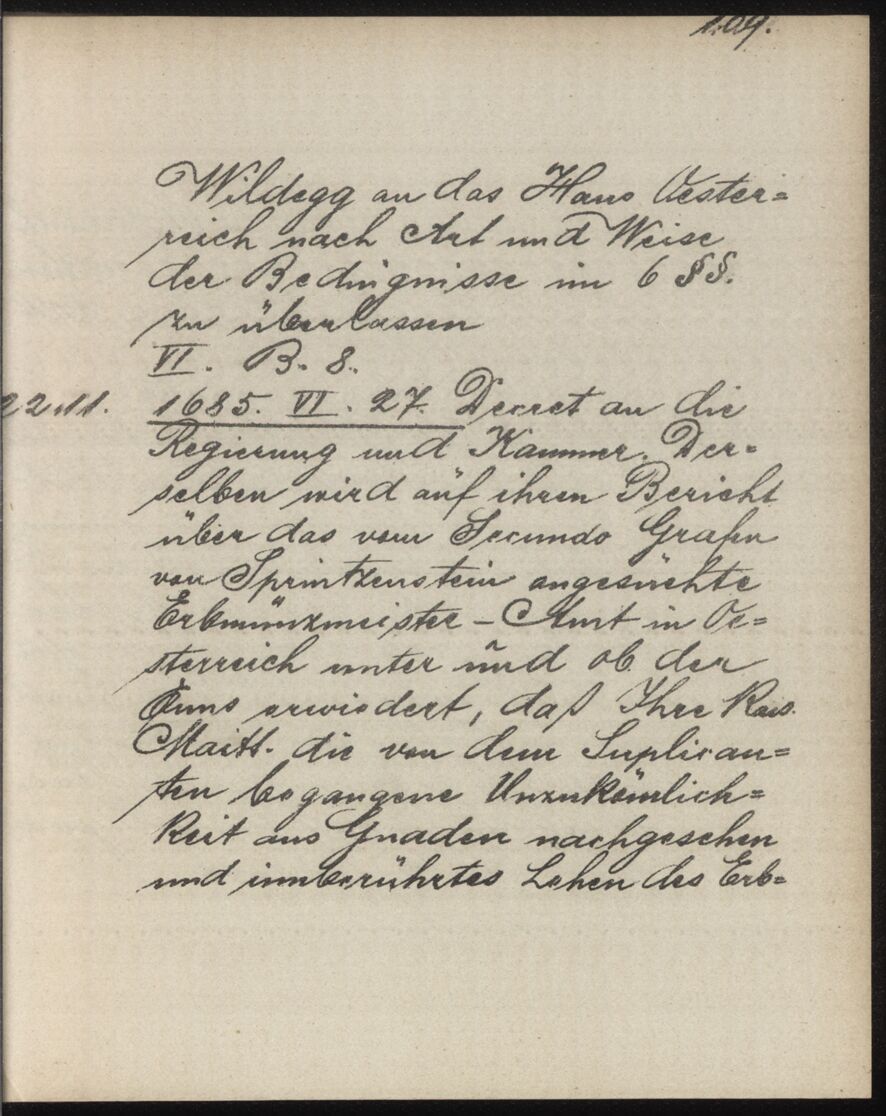 109.
Wildegg an das Haus Oester=
reich nach Art und Weise
der Bedingnisse im 6 §§.
zu überlassen
VI. B. 8.
22.11. 1685. VI. 27. Decret an die
Regierung und Kammer. Der=
selben wird auf ihren Bericht
über das vom Secundo Grafen
von Sprintzenstein angesuchte
Erbmünzmeister-Amt in Oe=
sterreich unter und ob der
Enns erwiedert, daß Ihre Kais.
Maitt. die von dem Suplican=
ten begangene Unzukömlich=
keit aus Gnaden nachgesehen
und innberührtes Lehen des Erb=